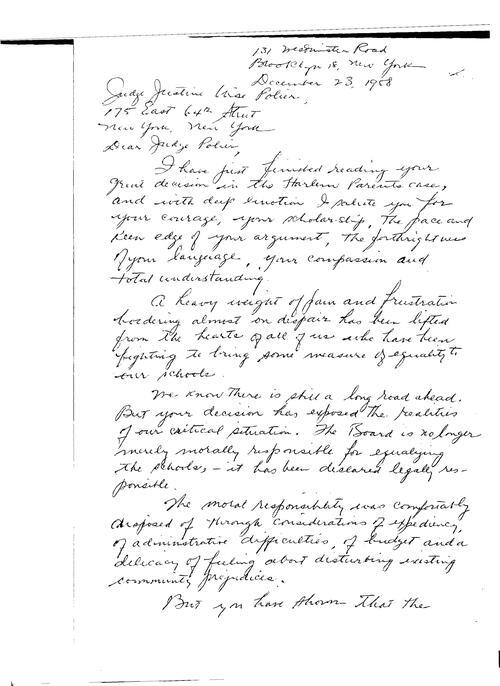 131 Westminster Road
Brooklyn 18, New York
December 23, 1958
Judge Justine Wise Polier,
175 East 64th Street
New York, New York
Dear Judge Polier,
I have just finished reading your
great decision in the Harlem Parents case,
and with deep emotion I salute you for
your courage, your scholarship, the pace and
keen edge of your argument, the forthrightness
of your language, your compassion and
total understanding.
A heavy weight of pain and frustration
bordering almost on despair has been lifted
from the hearts of all of us who have been
fighting to bring some measure of equality to
our schools.
We know there is still a long road ahead.
But your decision has exposed the realities
of our critical situation. The Board is no longer
merely morally responsible for equalizing
the schools, - it has been declared legally res-
ponsible.
The moral responsibility was comfortably
disposed of through considerations of expediency,
of administrative difficulties, of budget and a
delicacy of feeling about disturbing existing
community prejudices.
But you have shown that the